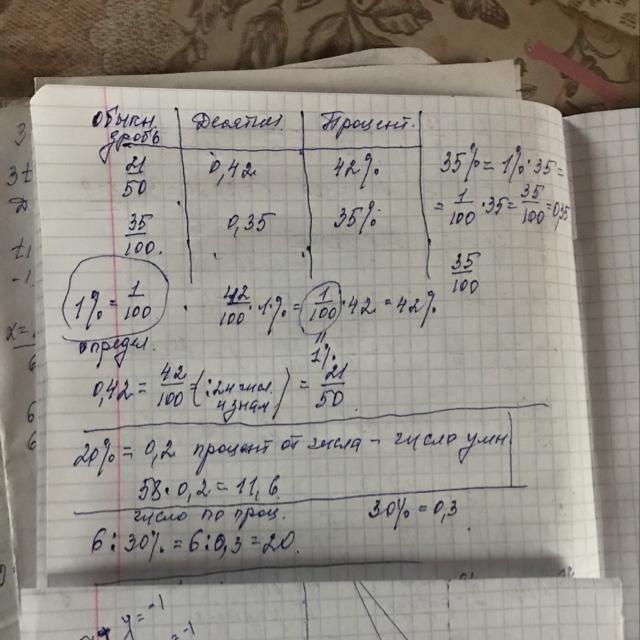 Обыкн. дробь | Десятич. | Процент.
21/50 | 0,42 | 42%
35/100 | 0,35 | 35%
35% = 1% · 35 =
= 1/100 · 35 = 35/100 = 0,35
35/100
1% = 1/100 · 42/100 · 1% = 1/100 · 42 = 42%
определ.
1%
0,42 = 42/100 = (:2 и числ. и знам) = 21/50
20% = 0,2 процент от числа - число умн
58 · 0,2 = 11,6
число по проц.
30% = 0,3
6 : 30% = 6 : 0,3 = 20
y = -1
= -1